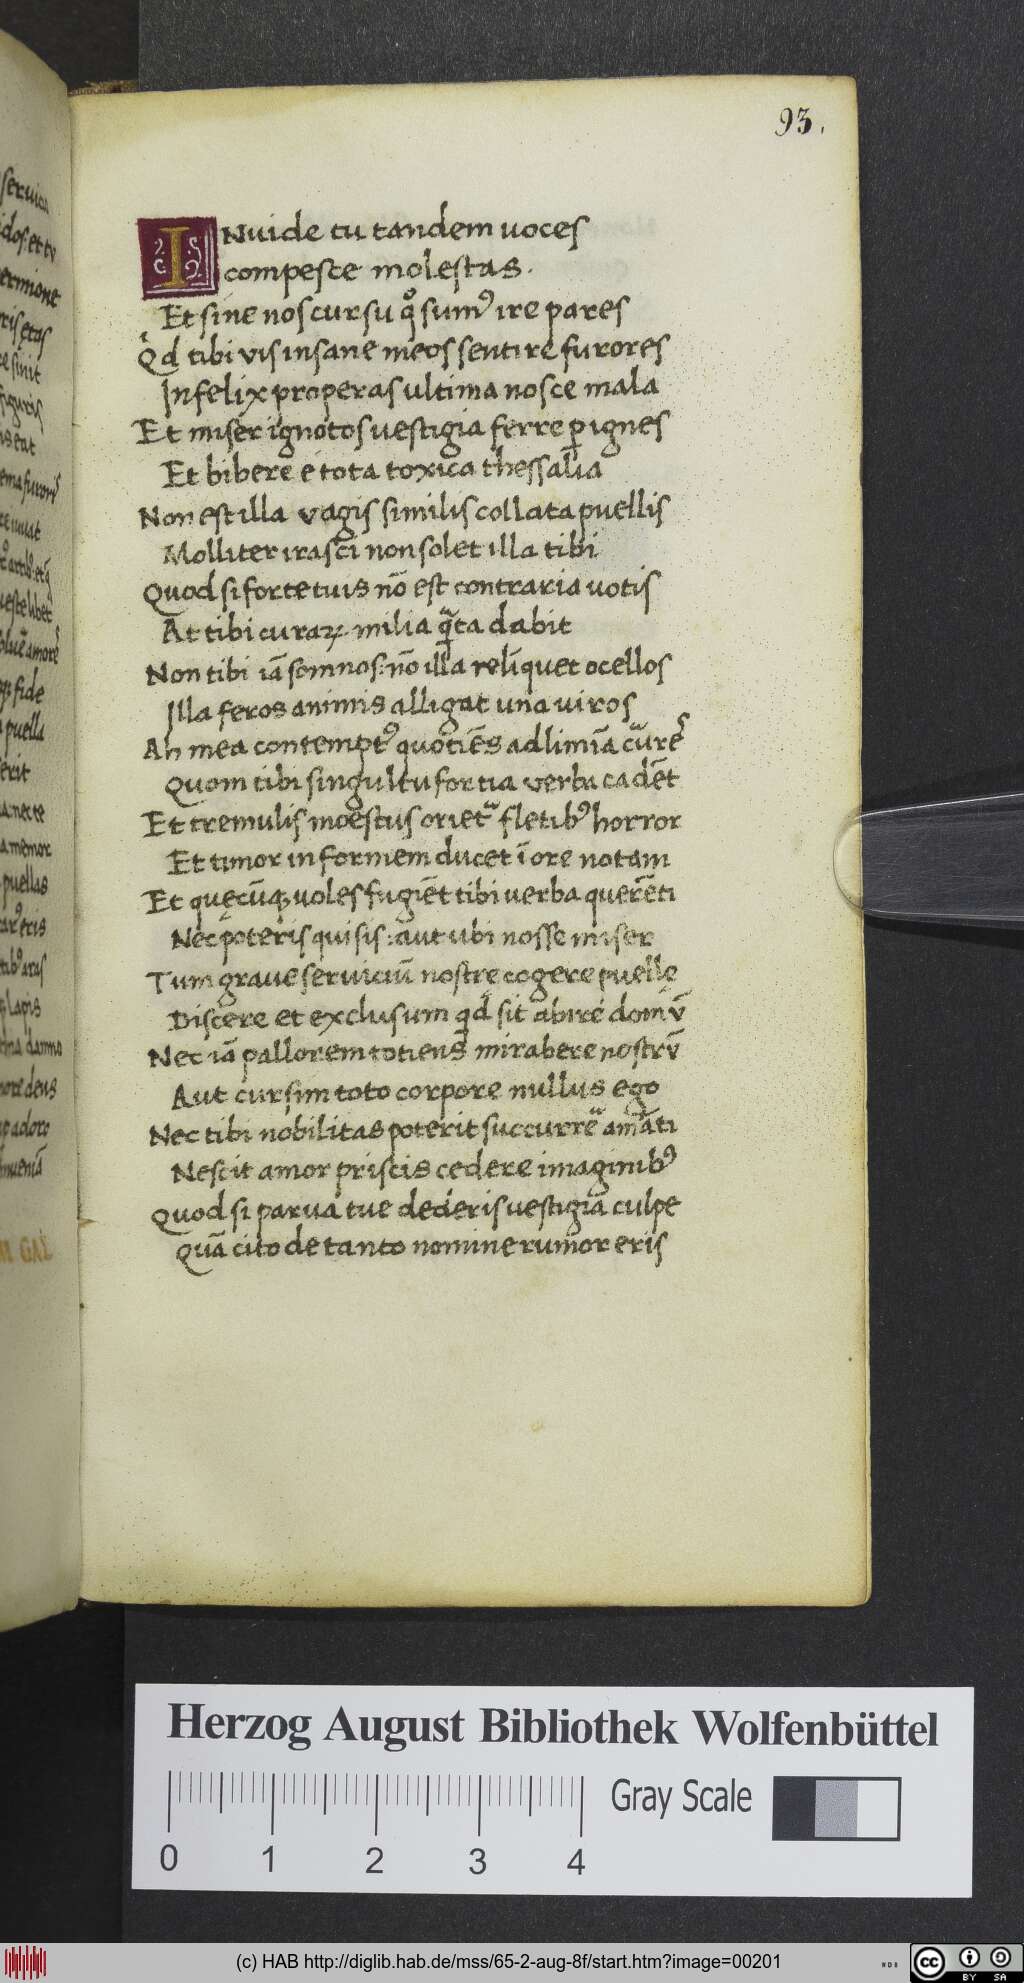 93.
INuide tu tandem uoces
compesce molestas.
Et sine nos cursu qͦ sumꝰ ire pares
Qd tibi vis insane meos sentire furores
Infelix properas ultima nosce mala
Et miser ignotos uestigia ferre ꝑ ignes
Et bibere e tota toxica thessalia
Non est illa vagis similis collata puellis
Molliter irasci non solet illa tibi
Quod si forte tuis nō est contraria uotis
At tibi curaꝝ milia qͣta dabit
Non tibi iā somnos: nō illa reliquet ocellos
Illa feros animis alligat una uiros
Ah mea contemptꝰ quotiēs ad limīa curre᷑
Quom tibi singultu fortia verba cadēt
Et tremulis moestus orietᷣ fletibꝰ horror
Et timor informem ducet ī ore notam
Et quęcūqꝫ uoles fugiēt tibi uerba querēti
Nec poteris qui sis: aut ubi nosse miser
Tum graue seruiciū nostrę cogere puellę
Discere et exclusum qd sit abire domū
Nec iā pallorem totiens mirabere nostrū
Aut cur sim toto corpore nullus ego
Nec tibi nobilitas poterit succurrē amāti
Nescit amor priscis cedere imaginibꝰ
Quod si parua tue dederis uestigia culpe
Quā cito de tanto nomine rumor eris
Herzog August Bibliothek Wolfenbüttel
Gray Scale
0 1 2 3 4
(c) HAB http://diglib.hab.de/mss/65-2-aug-8f/start.htm?image=00201
cc BY SA